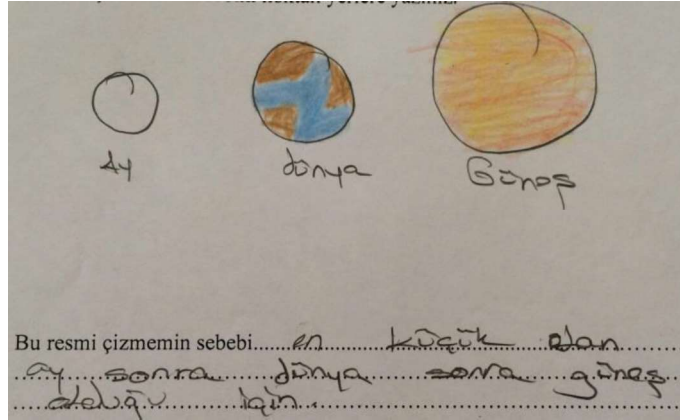 yerlere yazınız.
Ay dünya Güneş
Bu resmi çizmemin sebebi en küçük olan
ay sonra dünya sonra güneş
olduğu için.